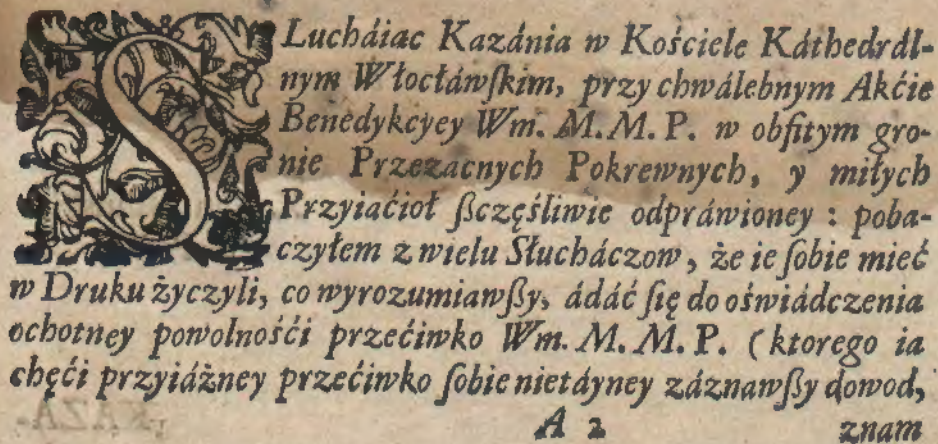 SLucháiac Kazánia w Kościele Káthedrál-
nym Włocłáwſkim, przy chwálebnym Akćie
Benedykcyey Wm. M. M. P. w obfitym gro-
nie Przezacnych Pokrewnych, y miłych
Przyiaćioł ſzczęśliwie odpráwioney : poba-
czyłem z wielu Słucháczow, że ie ſobie mieć
w Druku życzyli, co wyrozumiawſzy, ádáć ſię do oświádczenia
ochotney powolnośći przećiwko Wm. M. M. P. (ktorego ia
chęći przyiáźney przećiwko ſobie nietáyney záznawſzy dowod,
A 2 znam